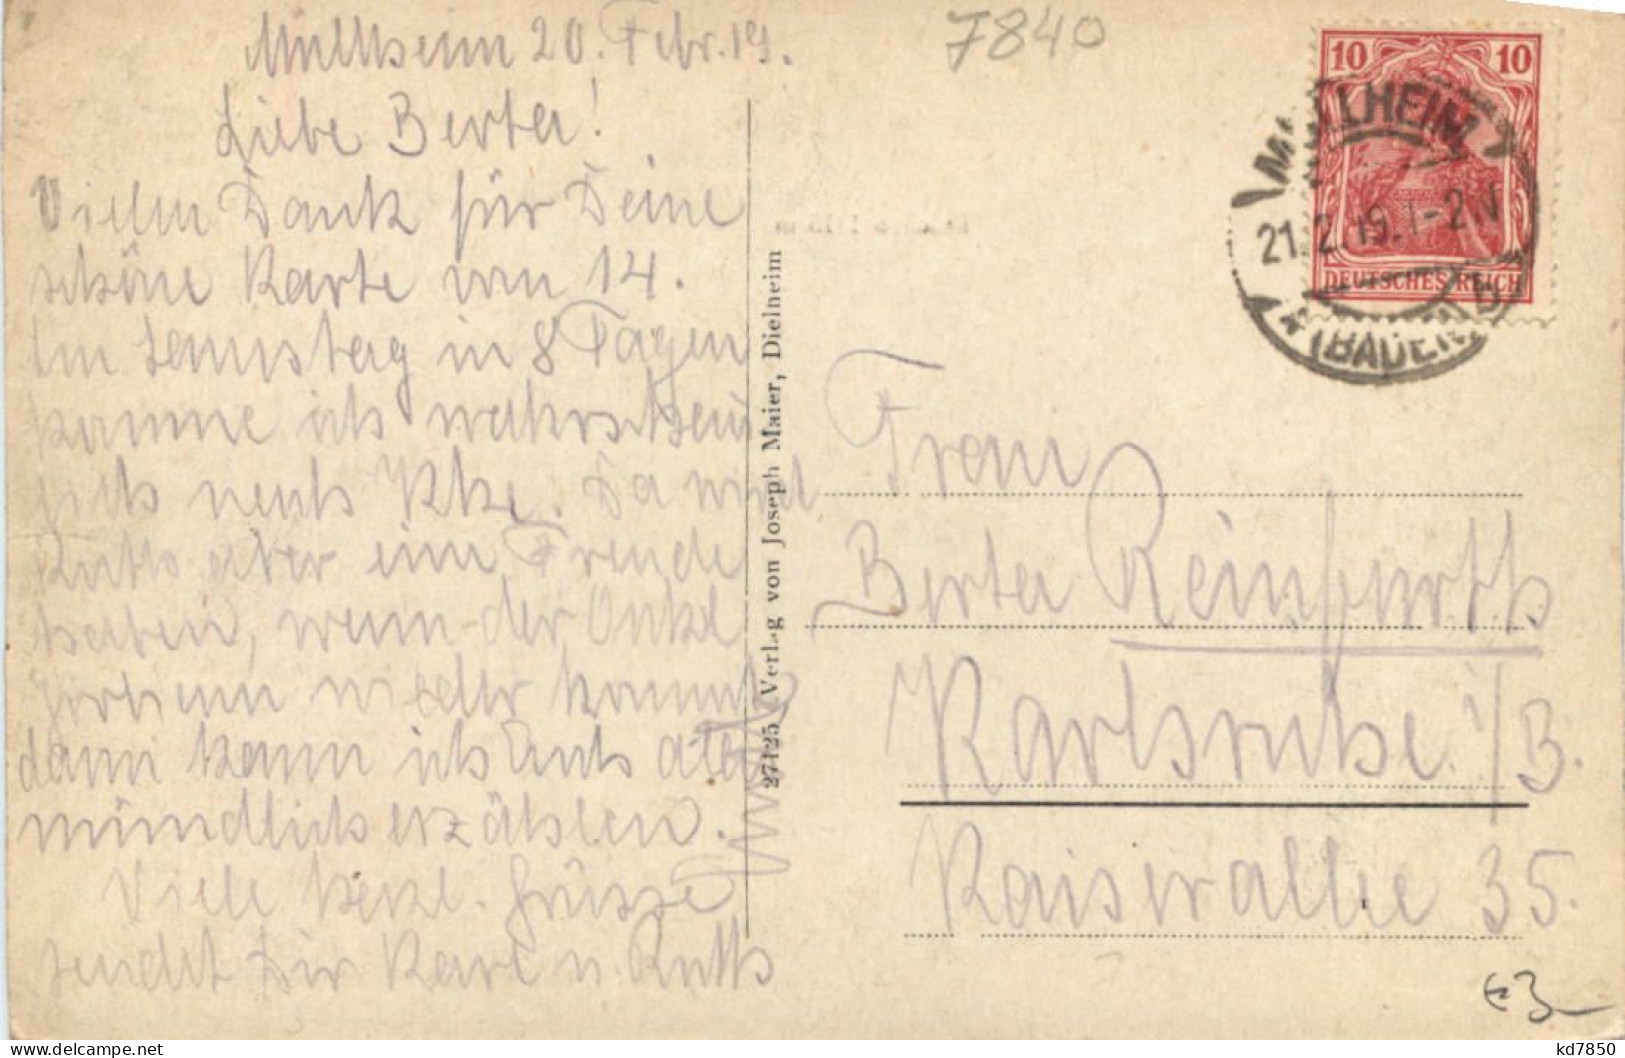 Müllheim 20. Febr. 19.
Liebe Berta!
Vielen Dank für Deine
schöne Karte vom 14.
Am Samstag in 8 Tagen
komme ich wahrschein
lich nach Khe. Da wird
Ruth aber eine Freude
haben, wenn der Onkel
Hermann wieder kommt
dann kann ich Euch alles
mündlich erzählen.
Viele herzl. Grüsse
sendet Dir Karl u. Ruth
27125 Verlag von Joseph Maier, Dielheim
7840
10 10
DEUTSCHES REICH
MÜLLHEIM
21.2.19.1-2N
(BADEN)
Frau
Berta Reinfurth
Karlsruhe i/B.
Kaiserallee 35.
€3
kd7850